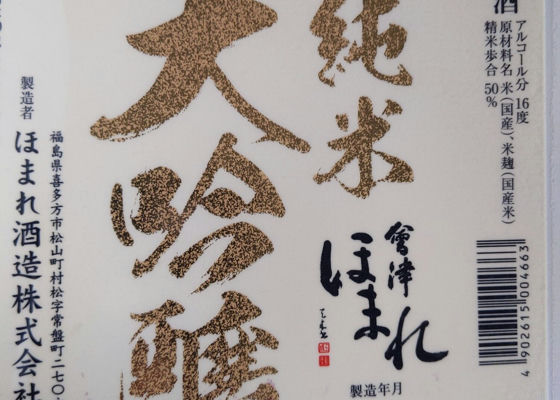 酒
アルコール分 16度
原材料名 米(国産)、米麹(国産米)
精米歩合 50%
純米
大吟醸
會津
ほまれ
製造年月
4902615004663
福島県喜多方市松山町村松字常盤町二七〇
製造者
ほまれ酒造株式会社